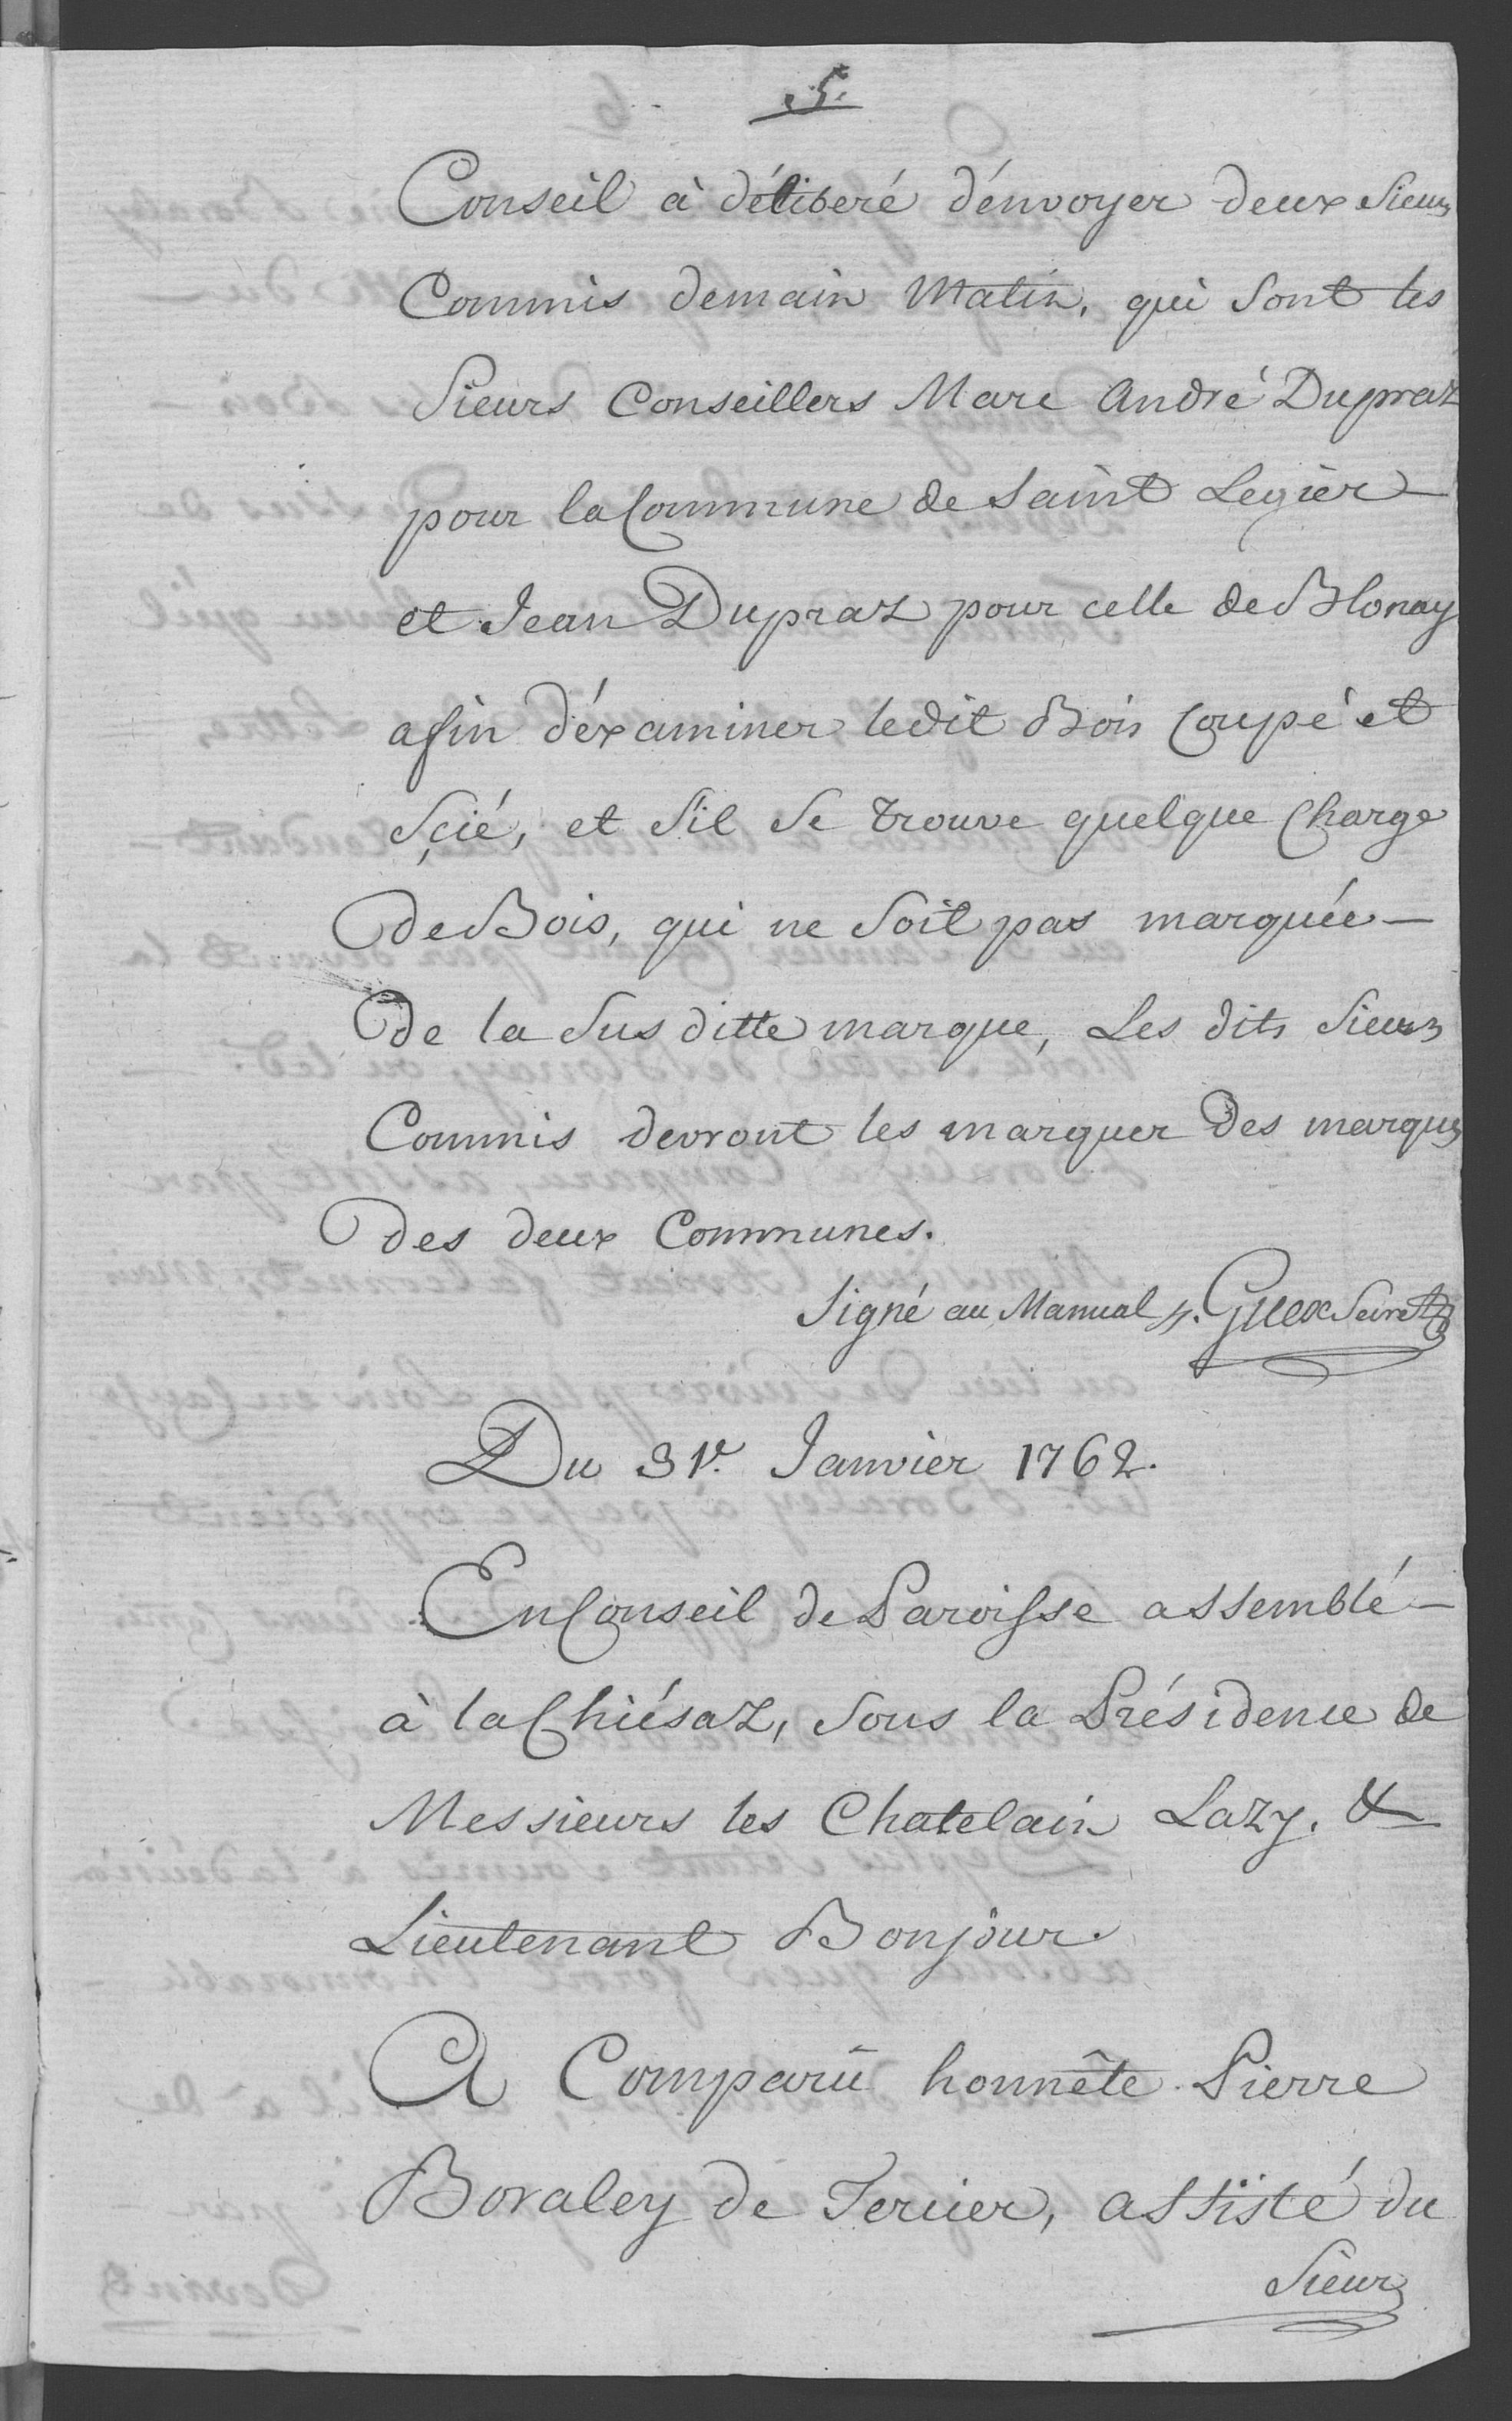 5.
Conseil à déliberé d'énvoyer deux Sieurs
Commis demain Matin, qui sont les
Sieurs Conseillers Marc André Dupraz
pour la Commune de Saint Legier
et Jean Dupraz pour celle de Blonay
afin d'éxaminer ledit Bois Coupé et
Scié, et s'il se trouve quelque Charge
de Bois, qui ne soit pas marquée
de la Sus ditte marque, Les dits Sieurs
Commis devront les marquer des marques
des deux Communes.
Signé au Manual, Guex Secret
Du 31e. Janvier 1762.
En Conseil de Paroisse assemblé
à la Chiésaz, Sous la Présidence de
Messieurs les Chatelain Lazy, &
Lieutenant Bonjour.
A Comparû honnête Pierre
Bovaley de Tercier, assisté du
Sieur